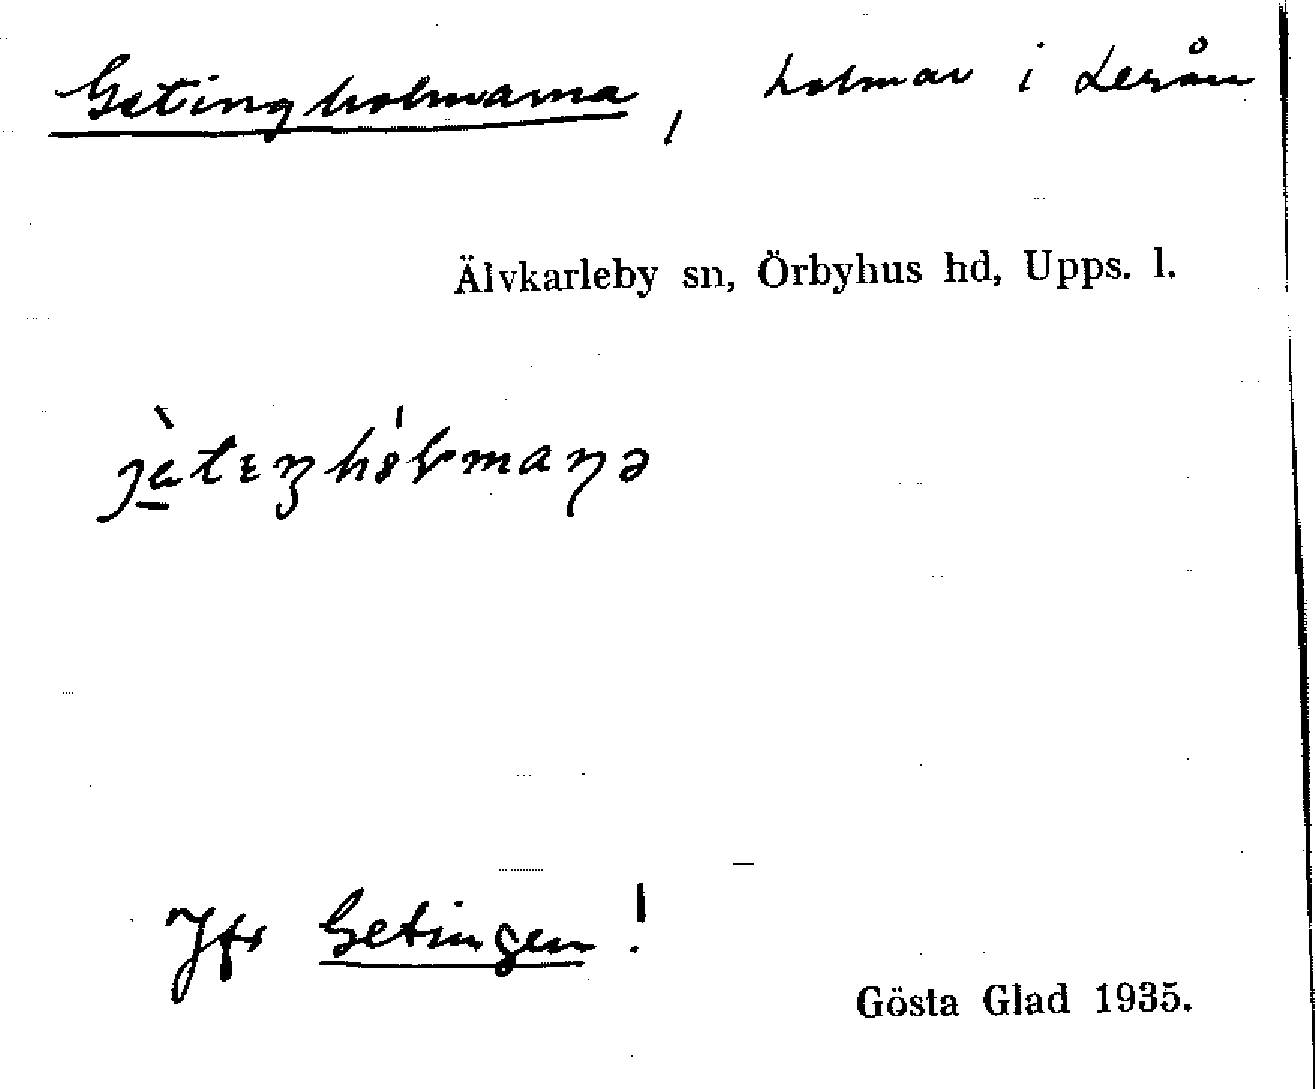 Getingholmarna, holmar i Lerån
Älvkarleby sn, Örbyhus hd, Upps. l.
Jfr Getingen!
Gösta Glad 1935.